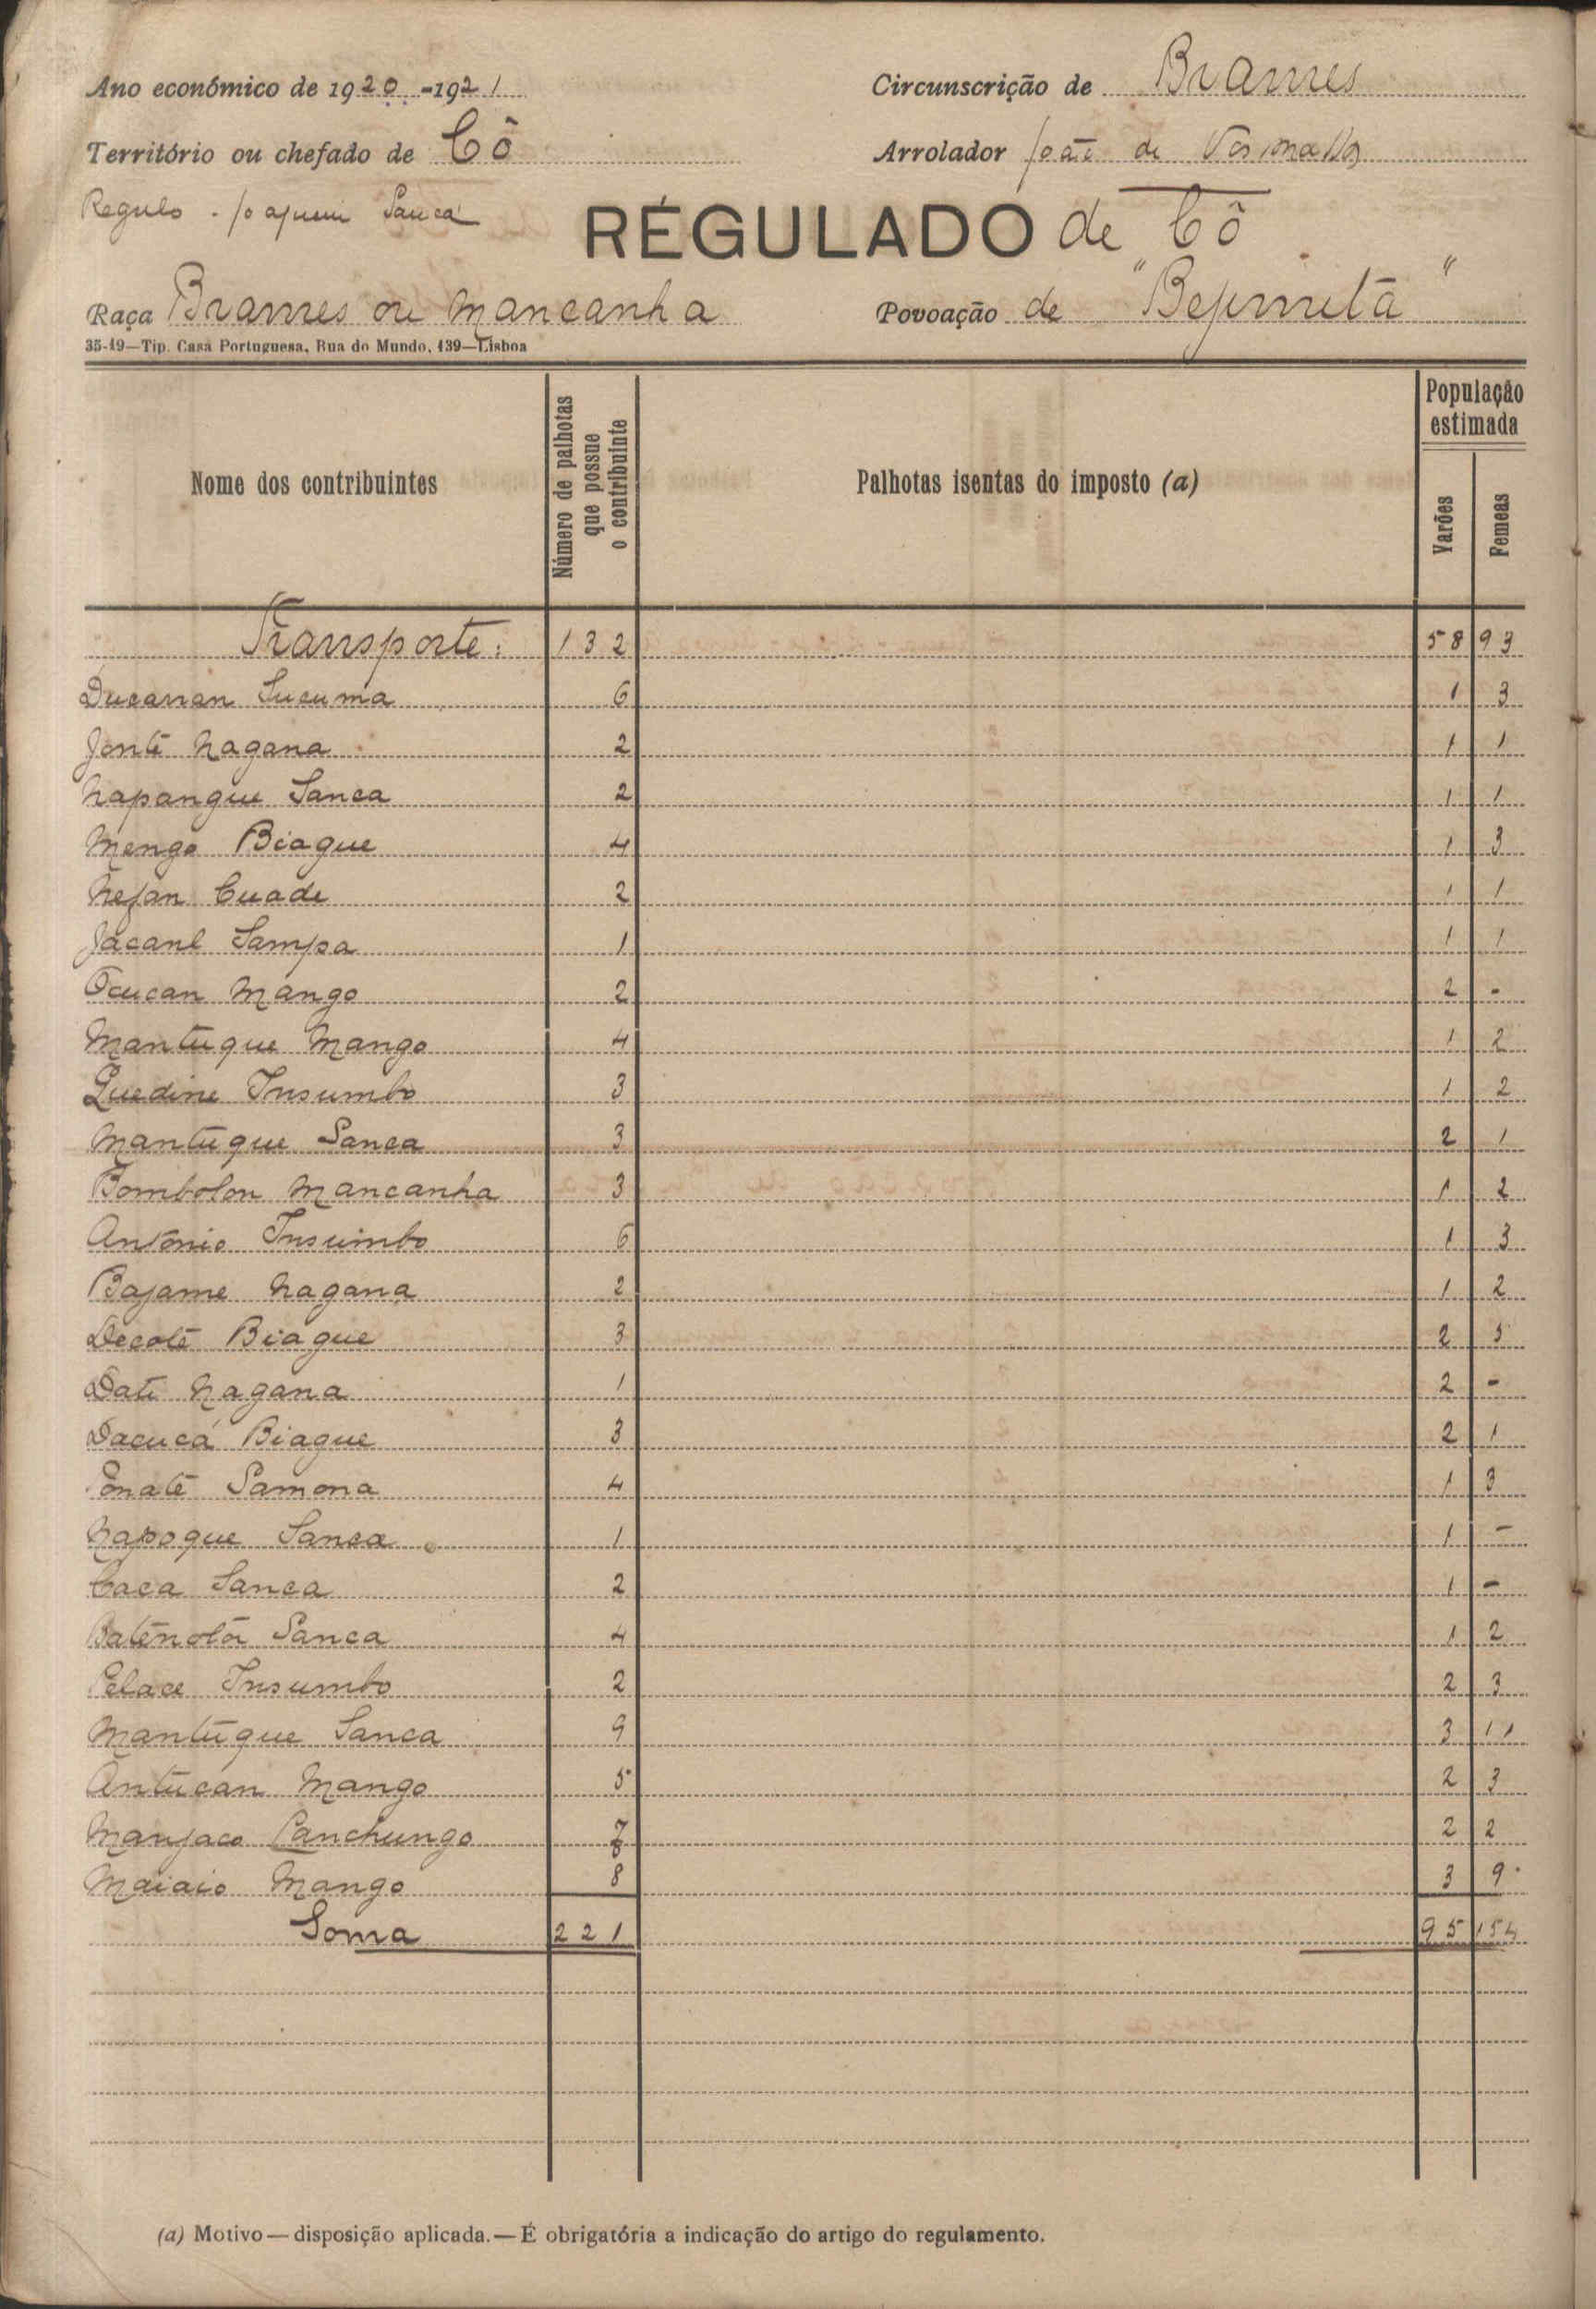 Ano económico de 1920-1921 Circunscrição de Brames
Território ou chefado de Cô Arrolador João de
Regulo - Joaquim Sanca
RÉGULADO de Cô
Raça Brames ou Mancanha Povoação de "Bejimitã"
35-19—Tip. Casa Portuguesa, Rua do Mundo, 139—Lisboa
Nome dos contribuintes Número de palhotas que possue o contribuinte Palhotas isentas do imposto (a) População estimada Varões Femeas
Transporte: 132 58 93
Ducanan Sucuma 6 1 3
Jontê Nagana 2 1 1
Napangue Sanca 2 1 1
Mengo Biague 4 1 3
Nefan Cuade 2 1 1
Jacanl Sampa 1 1 1
Ocucan Mango 2 2 -
Mantuque Mango 4 1 2
Quedine Insumbo 3 1 2
Mantuque Sanca 3 2 1
Bombolon Mancanha 3 1 2
António Insumbo 6 1 3
Bajame Nagana 2 1 2
Decolê Biague 3 2 5
Dati Nagana 1 2 -
Dacucá Biague 3 2 1
Onatê Samona 4 1 3
Napoque Sanca 1 1 -
Caca Sanca 2 1 -
Batênolá Sanca 4 1 2
Pelace Insumbo 2 2 3
Mantuque Sanca 9 3 11
Antucan Mango 5 2 3
Manjaco Canchungo 7 2 2
Maiaio Mango 8 3 9
Soma 221 95 154
(a) Motivo — disposição aplicada. — É obrigatória a indicação do artigo do regulamento.